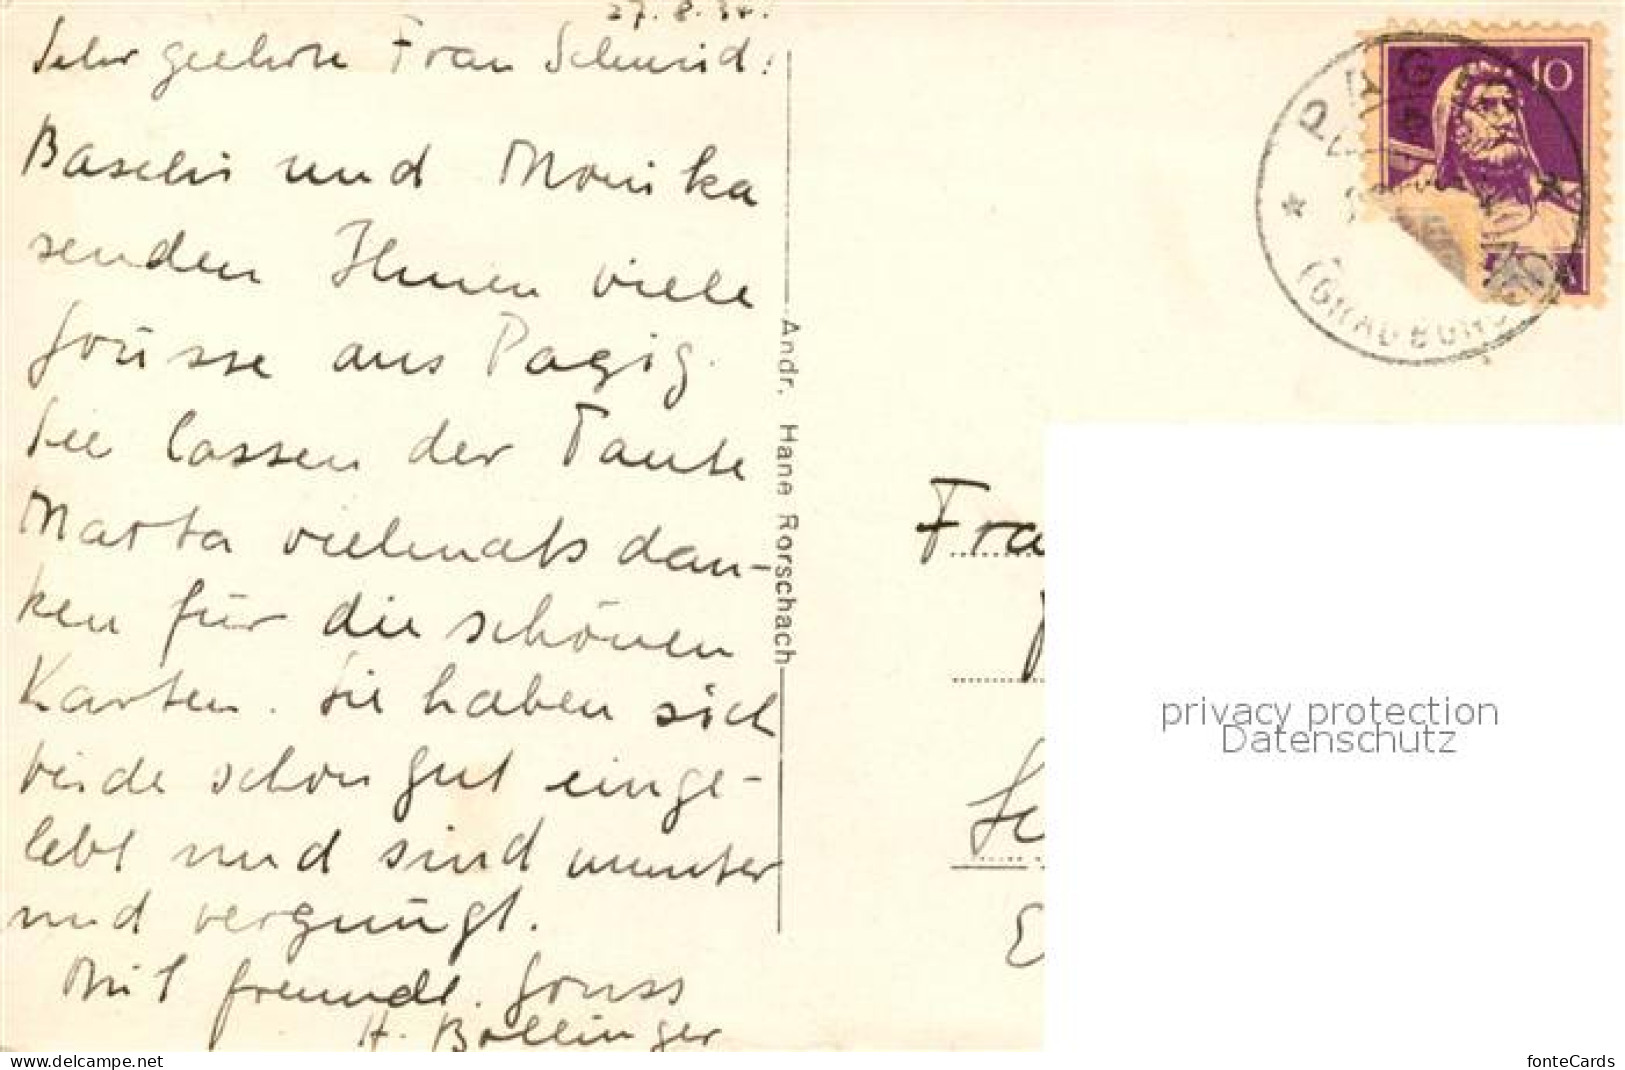 27. 8. 34.
Sehr geehrte Frau Schmid!
Baschi und Monika
senden Ihnen viele
Grüsse aus Pagig.
Sie lassen der Tante
Marta vielmals dan-
ken für die schönen
Karten. Sie haben sich
beide schon gut einge-
lebt und sind munter
und vergnügt.
Mit freundl. Gruss
H. Bollinger
Andr. Hane Rorschach
10
PAGIG
(GRAUBÜND
Fra
E
privacy protection
Datenschutz
www.delcampe.net
fonteCards